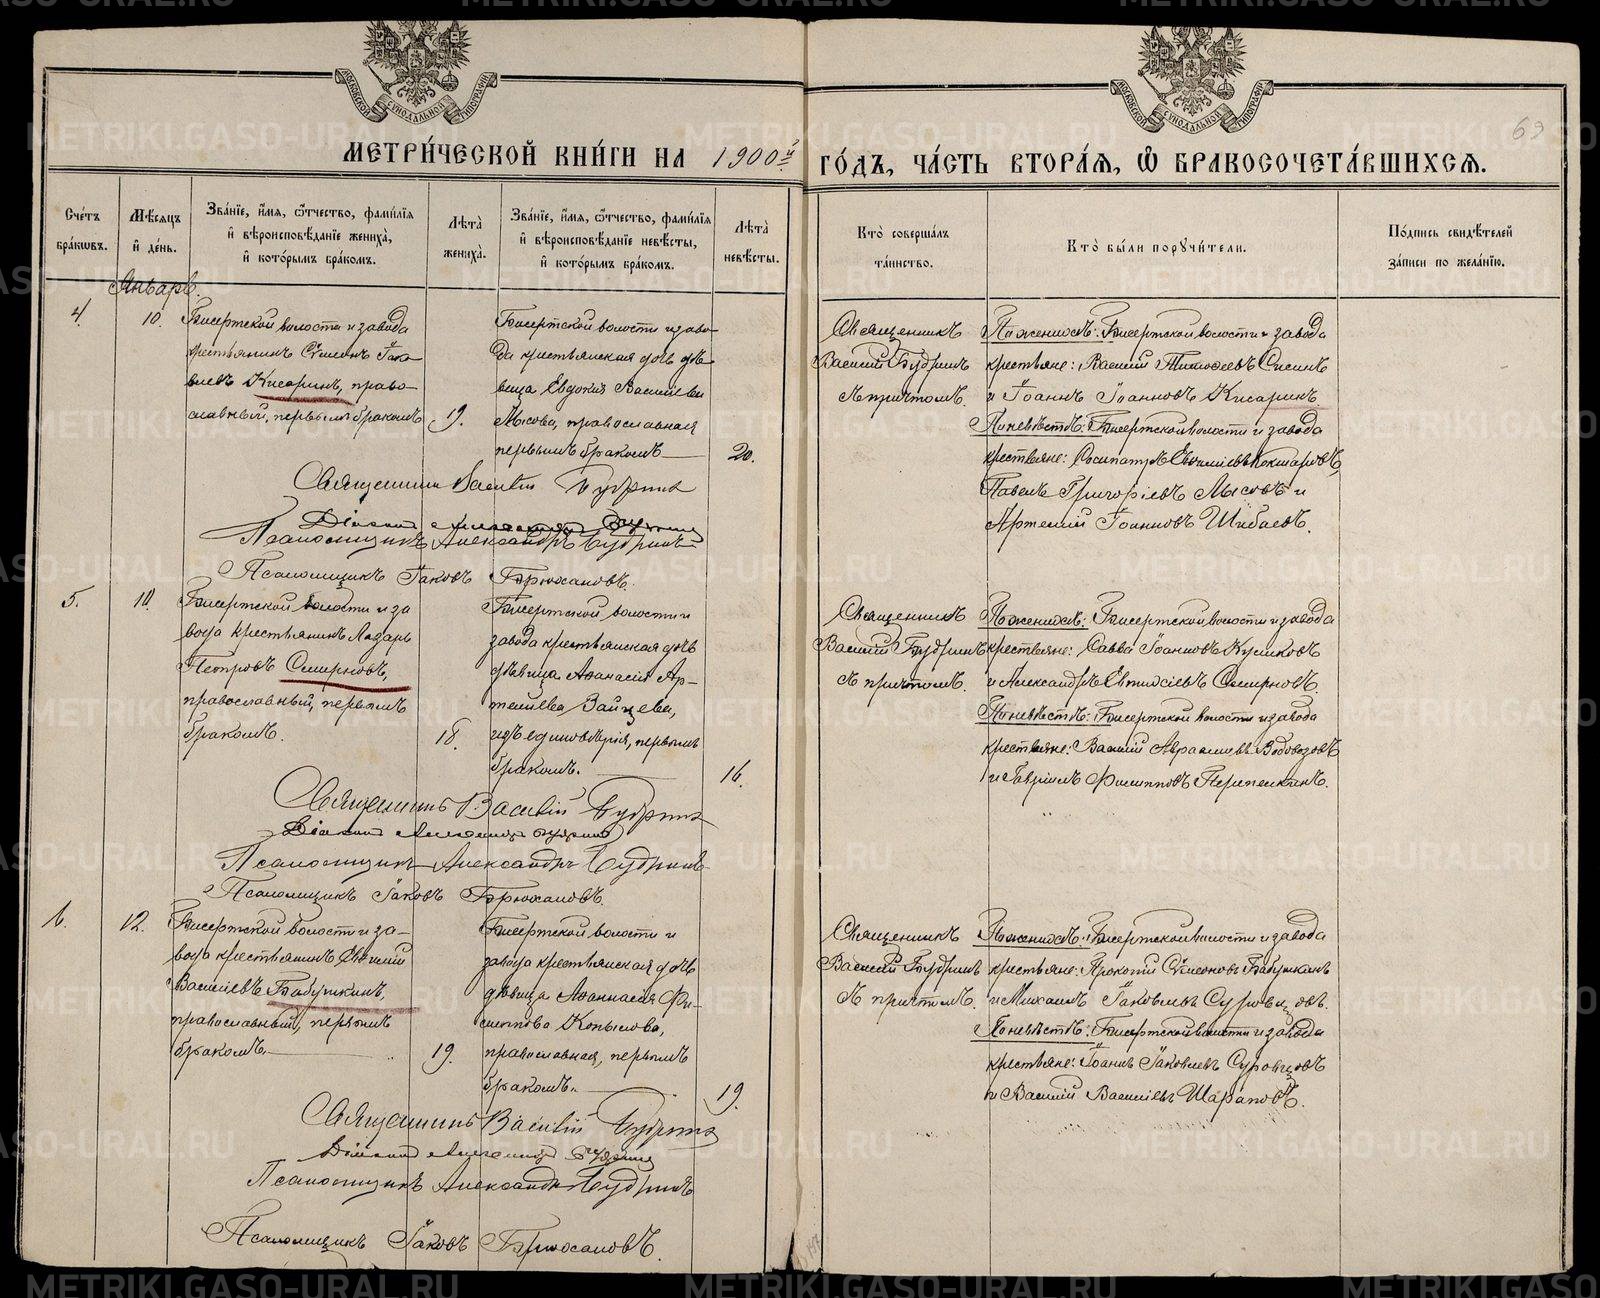 МЕТРИ́ЧЕСКОЙ КНИ́ГИ НА 1900й
ГО́ДЪ, ЧА́СТЬ ВТОРА́Я, Ѽ БРАКОСОЧЕТА́ВШИХСЯ.
69
Сче́тъ бра́кωвъ.
Мѣ́сяцъ и҆ де́нь.
Зва́нїе, и҆́мя, ѻ҆́тчество, фами́лїя и҆ вѣроисповѣ́данїе жениха̀, и҆ кото́рымъ бра́комъ.
Лѣта̀ жениха̀.
Зва́нїе, и҆́мя, ѻ҆́тчество, фами́лїя и҆ вѣроисповѣ́данїе невѣ́сты, и҆ кото́рымъ бра́комъ.
Лѣта̀ невѣ́сты.
Кто̀ соверша́лъ та́инство.
Кто̀ бы́ли порꙋчи́тели.
По́дпись свидѣ́телей за́писи по жела́нїю.
Январь.
4.
10.
Бисертской волости и завода
крестьянинъ Симеонъ Іако
влевъ Кисаринъ, право-
славный, первымъ бракомъ
19.
Бисертской волости и заво-
да крестьянская дочь дѣ-
вица Евдокія Василіева
Мысова, православная
первымъ бракомъ
20.
Священникъ
Василій Будринъ
съ причтомъ.
По женихѣ: Бисертской волости и завода
крестьяне: Василій
и Іоаннъ Іоанновъ Кисаринъ.
По невѣстѣ: Бисертской волости и завода
крестьяне:
Павелъ Григоріевъ Мысовъ и
Артемій Іоанновъ Шибаевъ.
Священникъ Василій Будринъ
Діаконъ
Псаломщикъ Александръ Будринъ
Псаломщикъ Іаковъ Брюхановъ.
5.
10.
Бисертской волости и за
вода крестьянинъ Лазарь
Петровъ Смирновъ,
православный, первымъ
бракомъ.
18.
Бисертской волости и
завода крестьянская дочь
дѣвица Аѳанасія Ар-
теміева Зайцева,
изъ единовѣрія, первымъ
бракомъ.
16.
Священникъ
Василій Будринъ
съ причтомъ.
По женихѣ: Бисертской волости и завода
крестьяне: Савва Іоанновъ Куликовъ
и Александръ Евтихіевъ Смирновъ.
По невѣстѣ: Бисертской волости и завода
крестьяне: Василій Аврааміевъ Водовозовъ
и Гавріилъ Филипповъ Перепелкинъ.
Священникъ Василій Будринъ
Діаконъ
Псаломщикъ Александръ Будринъ
Псаломщикъ Іаковъ Брюхановъ.
6.
12.
Бисертской волости и за-
вода крестьянинъ Евѳимій
Василіевъ Бабушкинъ,
православный, первымъ
бракомъ
19.
Бисертской волости и
завода крестьянская дочь
дѣвица Аѳанасія Фи-
липпова Копылова,
православная, первымъ
бракомъ.
19.
Священникъ
Василій Будринъ
съ причтомъ.
По женихѣ: Бисертской волости и завода
крестьяне: Прокопій Симеоновъ Бабушкинъ
и Михаилъ Іаковлевъ Суровцовъ.
По невѣстѣ: Бисертской волости и завода
крестьяне: Іоаннъ Іаковлевъ Суровцовъ
и Василій Василіевъ Шараповъ.
Священникъ Василій Будринъ
Діаконъ
Псаломщикъ Александръ Будринъ
Псаломщикъ Іаковъ Брюхановъ.
METRIKI.GASO-URAL.RU